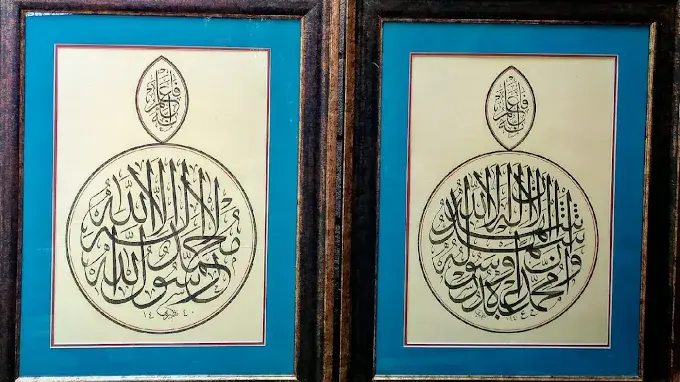 فاعلم أنه
لا إله إلا الله
محمد رسول الله
١٤٤٠
فاعلم أنه
أشهد أن لا إله إلا الله
وأشهد أن محمدا عبده ورسوله